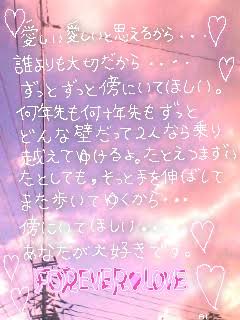 愛しい愛しいと思えるから・・・
誰よりも大切だから・・・・
ずっとずっと傍にいてほしい。
何年先も何十年先もずっと
どんな壁だって2人なら乗り
越えてゆけるよ。たとえつまずい
たとしても、そっと手を伸ばして
また歩いてゆくから・・・
傍にいてほしい・・・・
あなたが大好きです。
FOREVER♡LOVE